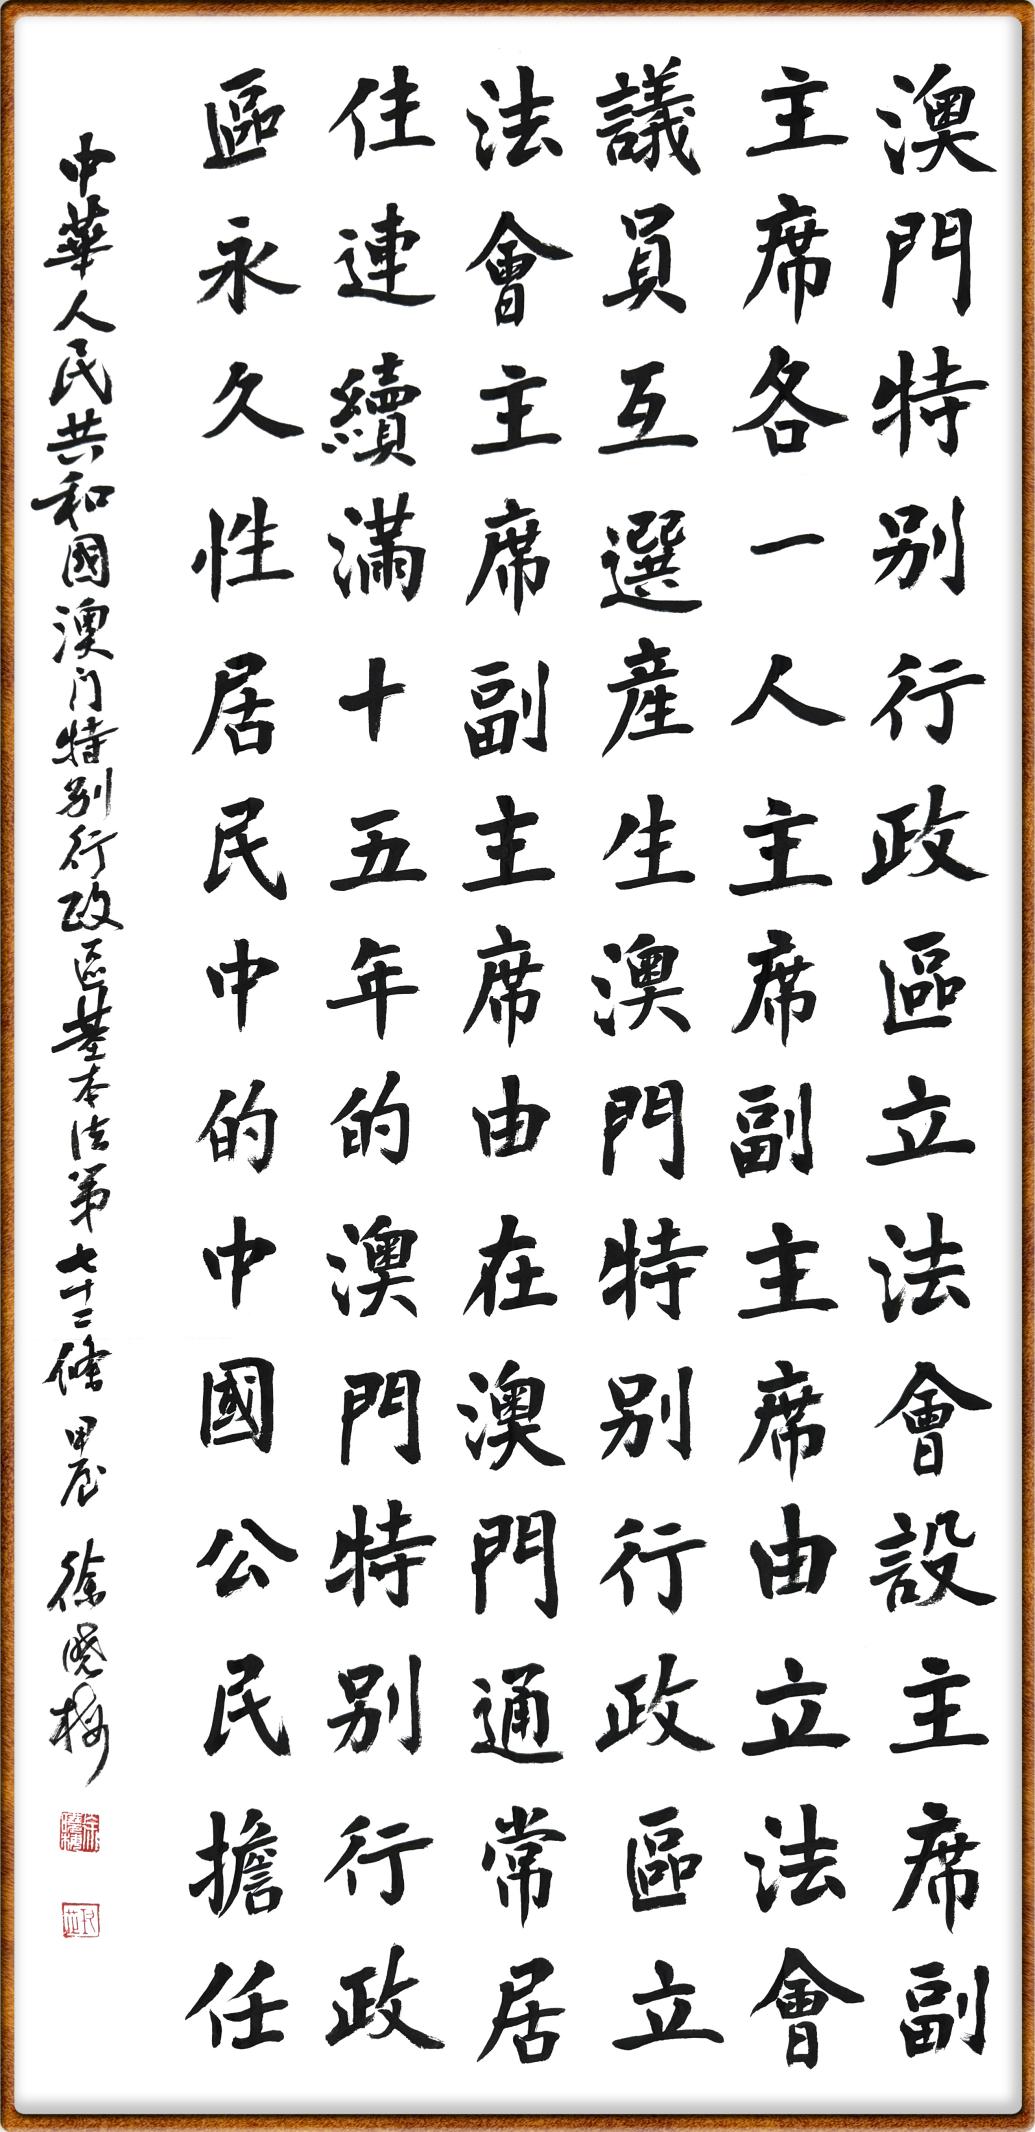 澳門特别行政區立法會設主席副
主席各一人主席副主席由立法會
議員互選産生澳門特别行政區立
法會主席副主席由在澳門通常居
住連續滿十五年的澳門特别行政
區永久性居民中的中國公民擔任
中華人民共和國澳门特别行政區基本法第七十二條 甲辰 徐曉梅
徐曉梅